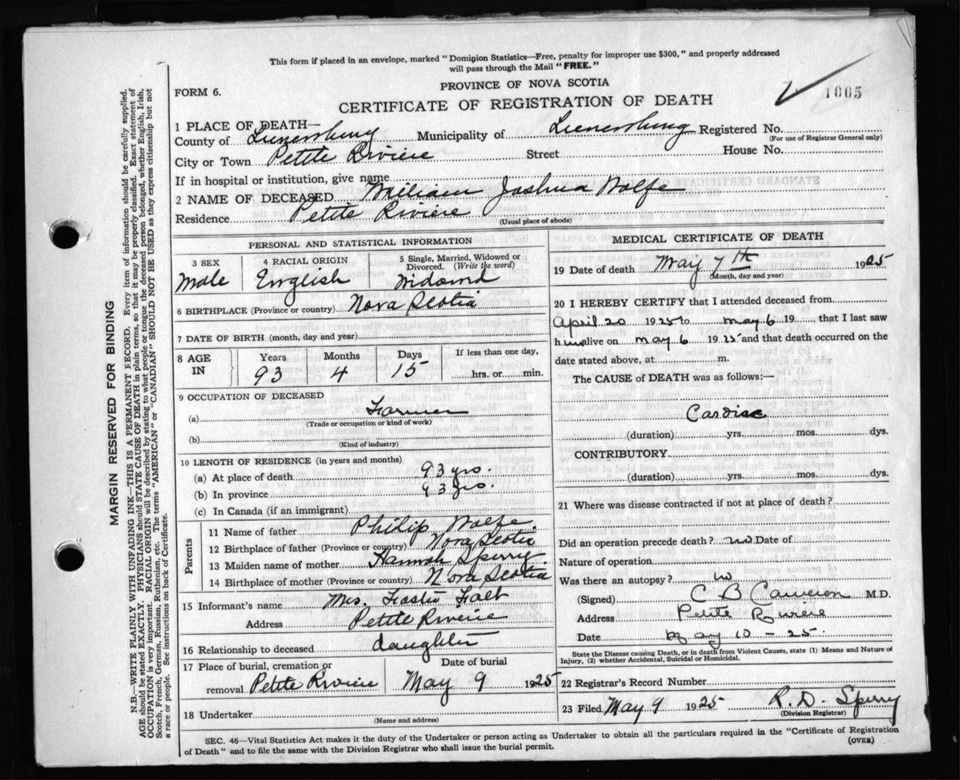 This form if placed in an envelope, marked "Dominion Statistics—Free, penalty for improper use $300," and properly addressed
will pass through the Mail "FREE."
PROVINCE OF NOVA SCOTIA
FORM 6.
1005
CERTIFICATE OF REGISTRATION OF DEATH
1 PLACE OF DEATH—
County of Lunenburg Municipality of Lunenburg Registered No.
(For use of Registrar General only)
City or Town Petite Riviere Street House No.
If in hospital or institution, give name
2 NAME OF DECEASED William Joshua Wolfe
Residence Petite Riviere
(Usual place of abode)
PERSONAL AND STATISTICAL INFORMATION
3 SEX 4 RACIAL ORIGIN 5 Single, Married, Widowed or Divorced. (Write the word)
Male English Widowed
6 BIRTHPLACE (Province or country) Nova Scotia
7 DATE OF BIRTH (month, day and year)
8 AGE IN Years Months Days If less than one day,
93 4 15 hrs. or min.
9 OCCUPATION OF DECEASED
(a) Farmer
(Trade or occupation or kind of work)
(b)
(Kind of industry)
10 LENGTH OF RESIDENCE (in years and months)
(a) At place of death 93 yrs.
(b) In province 93 yrs.
(c) In Canada (if an immigrant)
Parents
11 Name of father Philip Wolfe.
12 Birthplace of father (Province or country) Nova Scotia
13 Maiden name of mother Hannah Sperry
14 Birthplace of mother (Province or country) Nova Scotia
15 Informant's name Mrs.
Address Petite Riviere
16 Relationship to deceased daughter
17 Place of burial, cremation or removal Petite Riviere Date of burial May 9 1925
18 Undertaker
(Name and address)
MEDICAL CERTIFICATE OF DEATH
19 Date of death May 7th 1925
(Month, day and year)
20 I HEREBY CERTIFY that I attended deceased from
April 20 1925 to May 6 19 , that I last saw
h im alive on May 6 1925 and that death occurred on the
date stated above, at m.
The CAUSE of DEATH was as follows:—
Cardiac
(duration) yrs. mos. dys.
CONTRIBUTORY
(duration) yrs. mos. dys.
21 Where was disease contracted if not at place of death?
Did an operation precede death? no Date of
Nature of operation
Was there an autopsy? no
(Signed) C B Cameron M.D.
Address Petite Riviere
Date May 10 - 25.
State the Disease causing Death, or in death from Violent Causes, state (1) Means and Nature of
Injury, (2) whether Accidental, Suicidal or Homicidal.
22 Registrar's Record Number
23 Filed May 9 1925 R. D. Sperry
(Division Registrar)
SEC. 46—Vital Statistics Act makes it the duty of the Undertaker or person acting as Undertaker to obtain all the particulars required in the "Certificate of Registration
of Death" and to file the same with the Division Registrar who shall issue the burial permit.
(OVER)
MARGIN RESERVED FOR BINDING
N.B.—WRITE PLAINLY WITH UNFADING INK—THIS IS A PERMANENT RECORD. Every item of information should be carefully supplied.
AGE should be stated EXACTLY. PHYSICIANS should STATE CAUSE OF DEATH in plain terms, so that it may be properly classified. Exact statement of
OCCUPATION is very important. RACIAL ORIGIN will be described by stating to what people or tongue the deceased person belonged, whether English, Irish,
Scotch, French, German, Russian, Ruthenian, etc. The terms "AMERICAN" or "CANADIAN" SHOULD NOT BE USED as they express citizenship but not
a race or people. See instructions on back of Certificate.